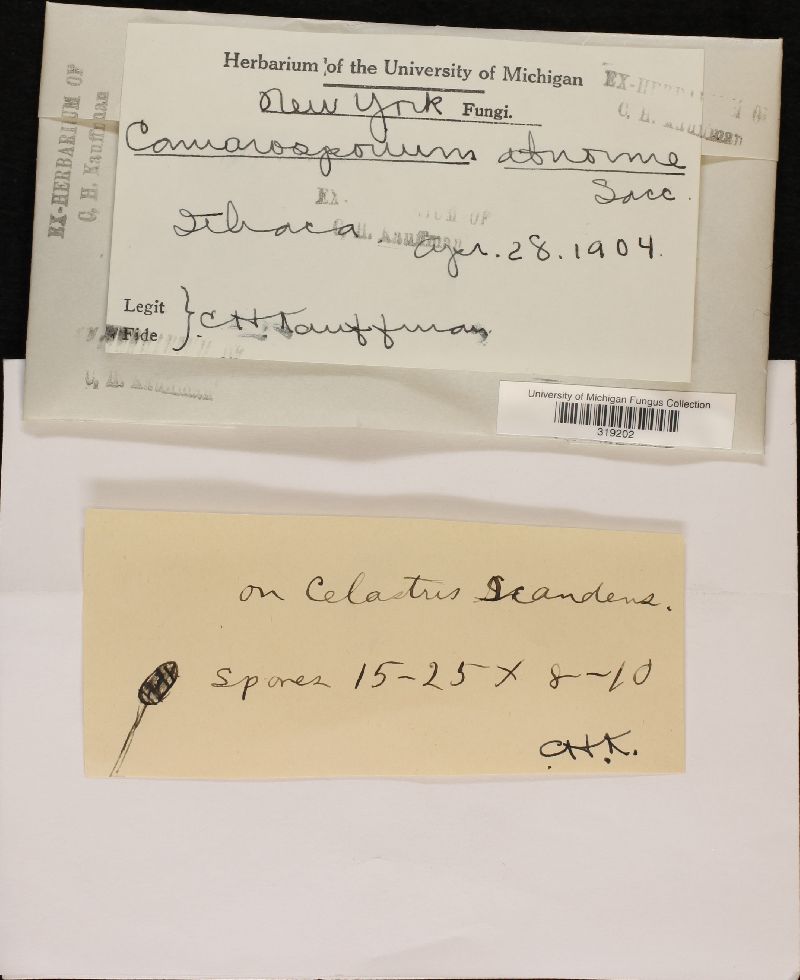 Herbarium of the University of Michigan
New York Fungi.
Camarosporium abnorme
Sacc.
Ithaca. Apr. 28. 1904.
Legit
Fide
C.H. Kauffman
EX-HERBARIUM OF
C. H. Kauffman
EX-HERBARIUM OF
C. H. Kauffman
EX-HERBARIUM OF
C. H. Kauffman
University of Michigan Fungus Collection
319202
on Celastrus Scandens.
Spores 15-25 X 8-10
C.H.K.